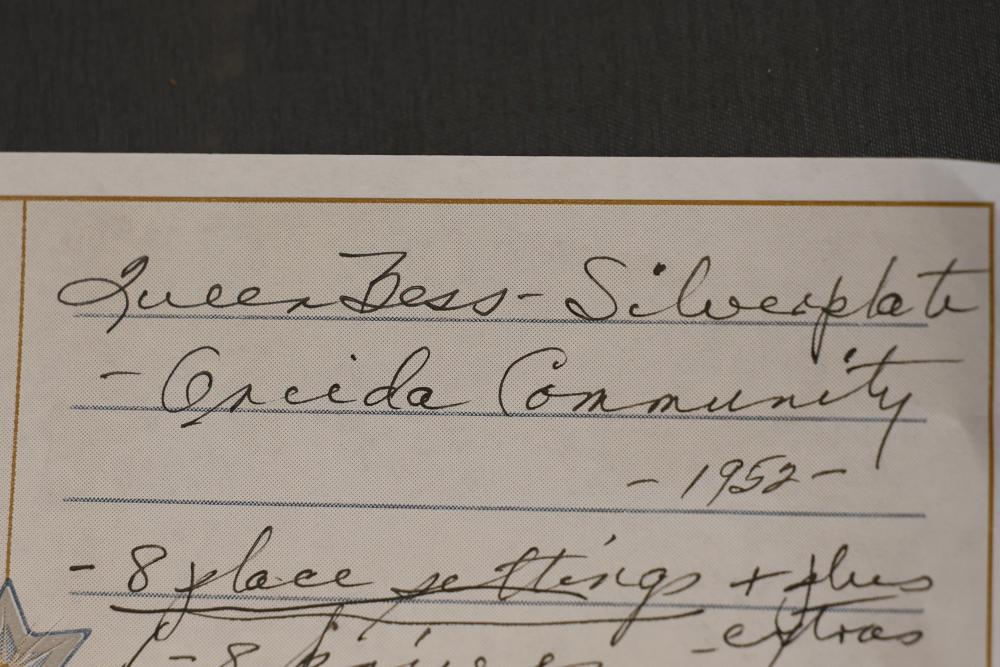 Queen Bess - Silverplate
- Oneida Community
- 1952 -
- 8 place settings + plus
- extras
- 8